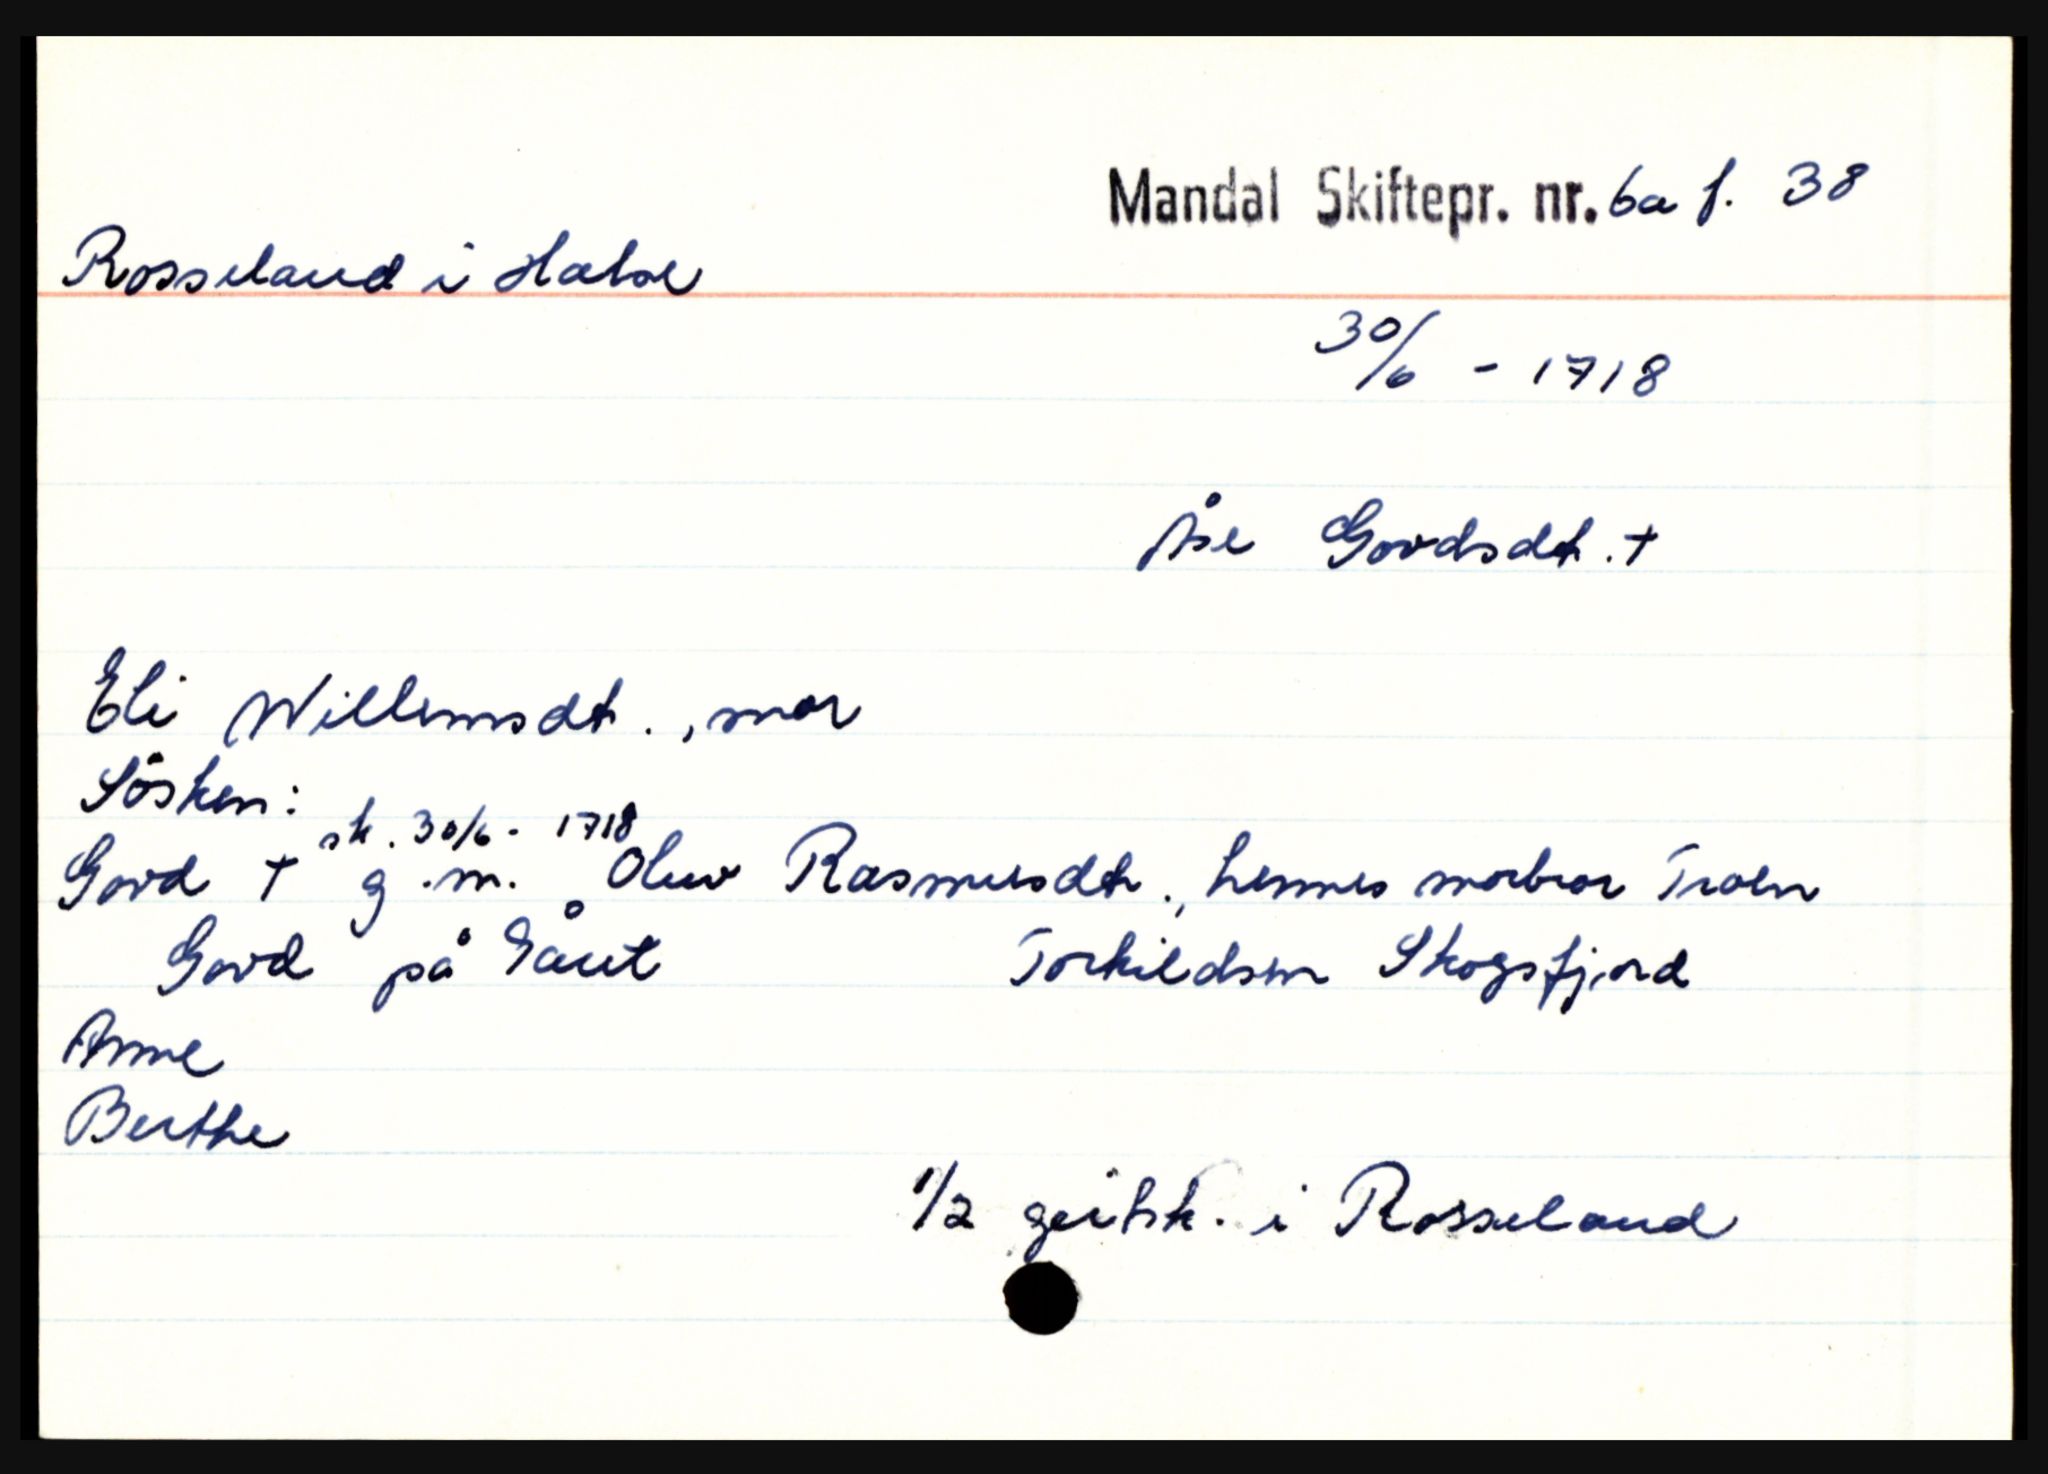 Mandal Skiftepr. nr. 6a f. 38
Rosseland i Halse
30/6 - 1718
Åse Govdsdt. +
Eli Willemsdt., mor
Sösken:
sk. 30/6 - 1718
Govd + g.m. Oluv Rasmusdt., hennes morbror Troen
Govd på Tånt Torkildsen Skogsfjord
Anne
Berthe
1/2 geitsk. i Rosseland